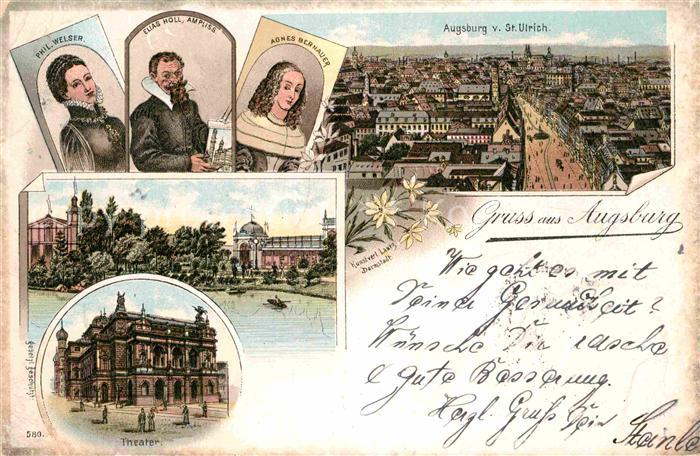 PHIL. WELSER.
ELIAS HOLL, AMPLISS.
AGNES BERNAUER.
Augsburg v. St. Ulrich.
Gruss aus Augsburg
Kunstverl. Lautz
Darmstadt.
Wie geht es mit
Deiner Gesundheit?
Wünsche Dir rasche
& gute Besserung.
Herzl. Gruß Dein
Gesetzl. Geschützt.
580.
Theater.